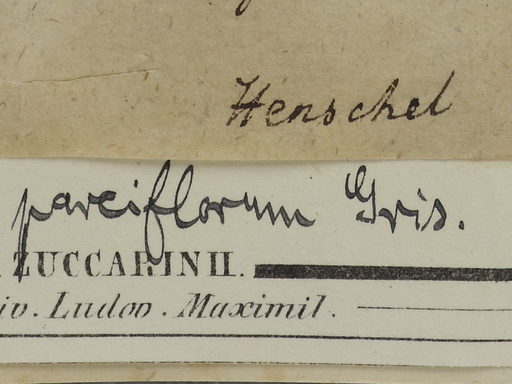 Henschel
parciflorum Gris.
ZUCCARINII.
iv. Ludov. Maximil.